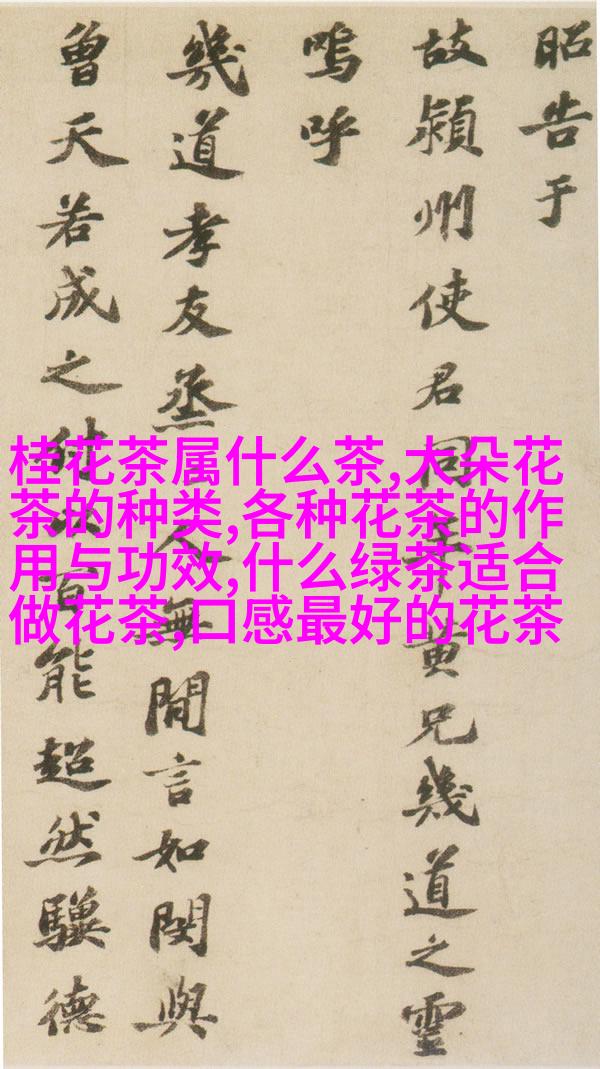 昭告于
故潁州使君同年黄兄幾道之靈
嗚呼
幾道孝友烝人無閒言如閔與
曾天若成之以百能超然驥德
桂花茶属什么茶,大朵花
茶的种类,各种花茶的作
用与功效,什么绿茶适合
做花茶,口感最好的花茶